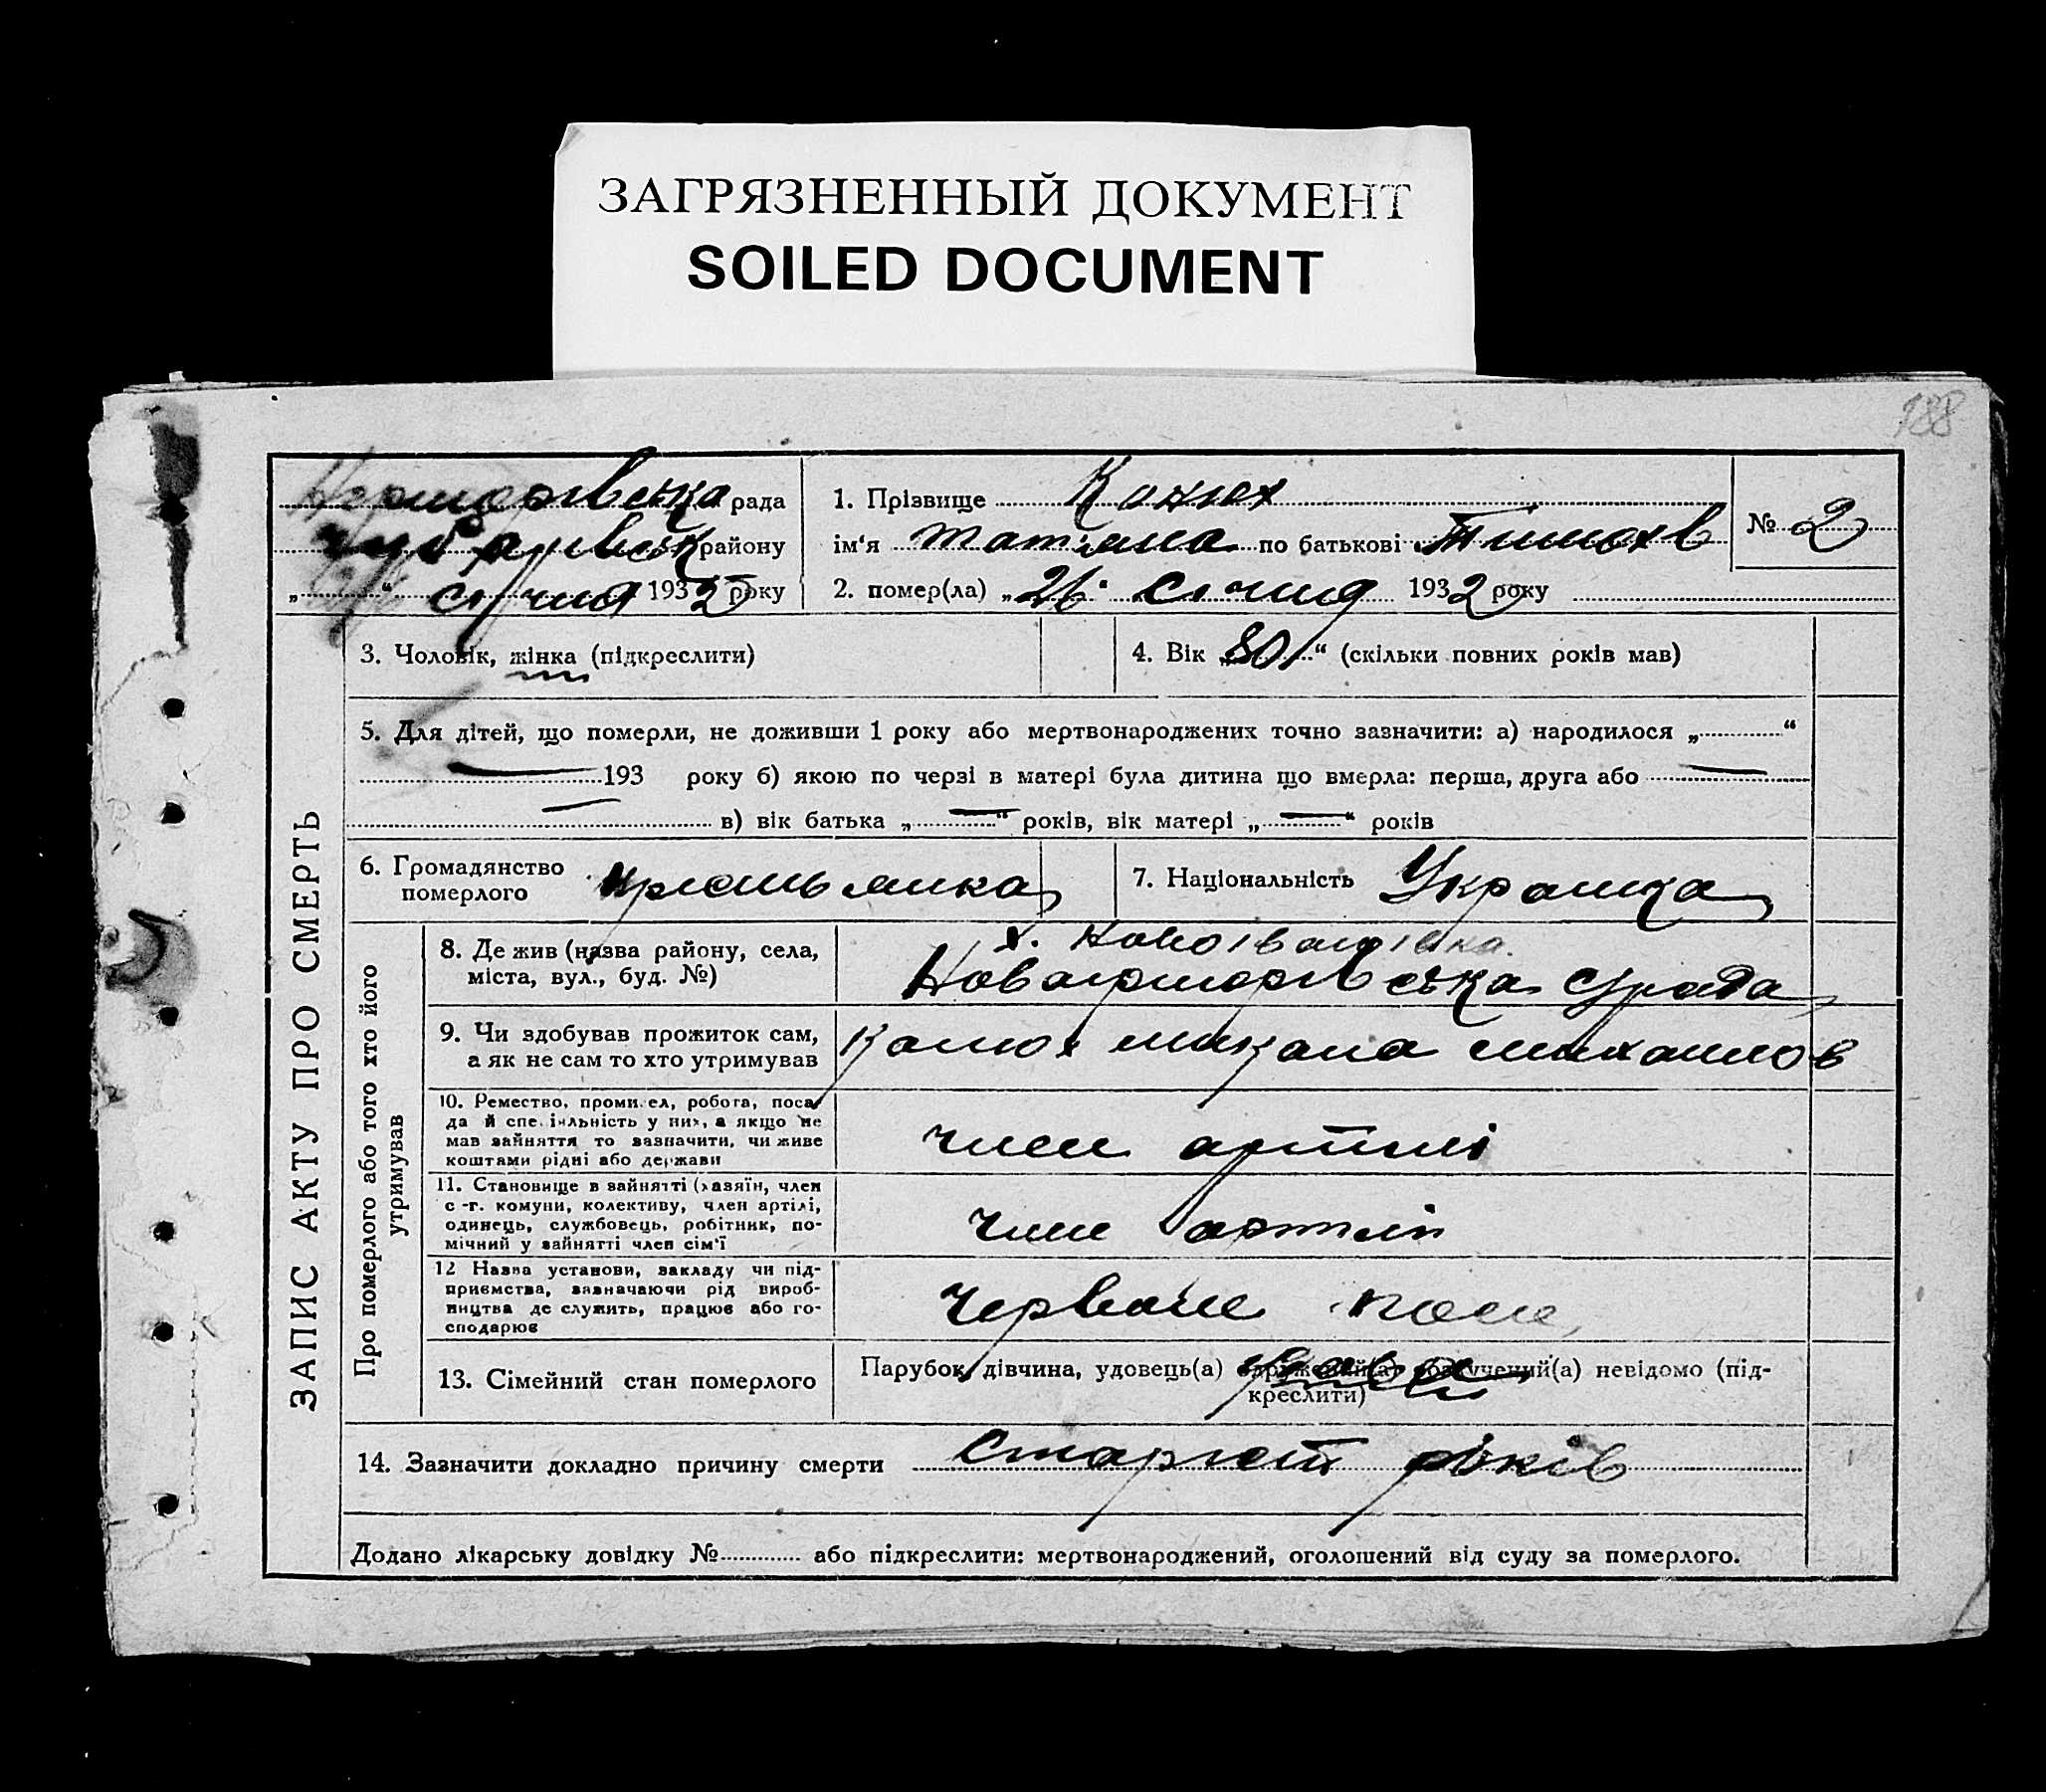 ЗАГРЯЗНЕННЫЙ ДОКУМЕНТ
SOILED DOCUMENT
188
рада
району
„ “ січня 1932 року
1. Прізвище
ім‘я Татіяна по батькові Тимохв
№ 2
2. помер(ла) „26 січня 1932 року
ЗАПИС АКТУ ПРО СМЕРТЬ
3. Чоловік, жінка (підкреслити)
4. Вік „80“ (скільки повних років мав)
5. Для дітей, що померли, не доживши 1 року або мертвонароджених точно зазначити: а) народилося „ “
— 193 року б) якою по черзі в матері була дитина що вмерла: перша, друга або —
— в) вік батька „—“ років, вік матері „—“ років
6. Громадянство
померлого
7. Національність Українка
Про померлого або того хто його
утримував
8. Де жив (назва району, села,
міста, вул., буд. №)
х. Новоіванівка.
рада
9. Чи здобував прожиток сам,
а як не сам то хто утримував
10. Ремество, промисел, робота, поса-
да й спеціяльність у них, а якщо не
мав зайняття то зазначити, чи живе
коштами рідні або держави
член артилі
11. Становище в зайнятті (хазяїн, член
с-г. комуни, колективу, член артілі,
одинець, службовець, робітник, по-
мічний у зайнятті член сім'ї
член артілі
12 Назва установи, закладу чи під-
приємства, зазначаючи рід вироб-
ництва де служить, працює або го-
сподарює
Червоне поле
13. Сімейний стан померлого
Парубок, дівчина, удовець(а) одружений(а) розлучений(а) невідомо (під-
креслити)
14. Зазначити докладно причину смерти
Старист років
Додано лікарську довідку № або підкреслити: мертвонароджений, оголошений від суду за померлого.